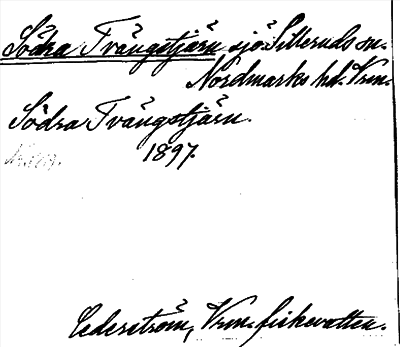 Södra Tvängstjärn sjö Silleruds sn.
Nordmarks hd. Vrm.
Södra Tvängstjärn.
1897.
Cederström, Vrm. fiskevatten.